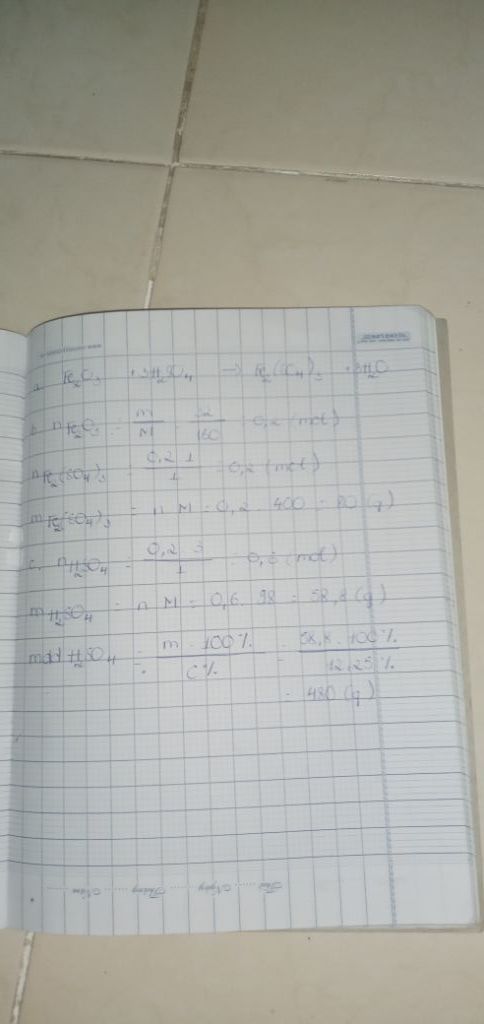 a. Fe2O3 + 3H2SO4 → Fe2(SO4)3 + 3H2O
b. nFe2O3 = m/M = 32/160 = 0,2 (mol)
nFe2(SO4)3 = 0,2.1/1 = 0,2 (mol)
mFe2(SO4)3 = n.M = 0,2.400 = 80 (g)
c. nH2SO4 = 0,2.3/1 = 0,6 (mol)
mH2SO4 = n.M = 0,6.98 = 58,8 (g)
mdd H2SO4 = m.100%/C% = 58,8.100%/12,25%
= 480 (g)
Thứ ...... Ngày ...... Tháng ...... Năm ......